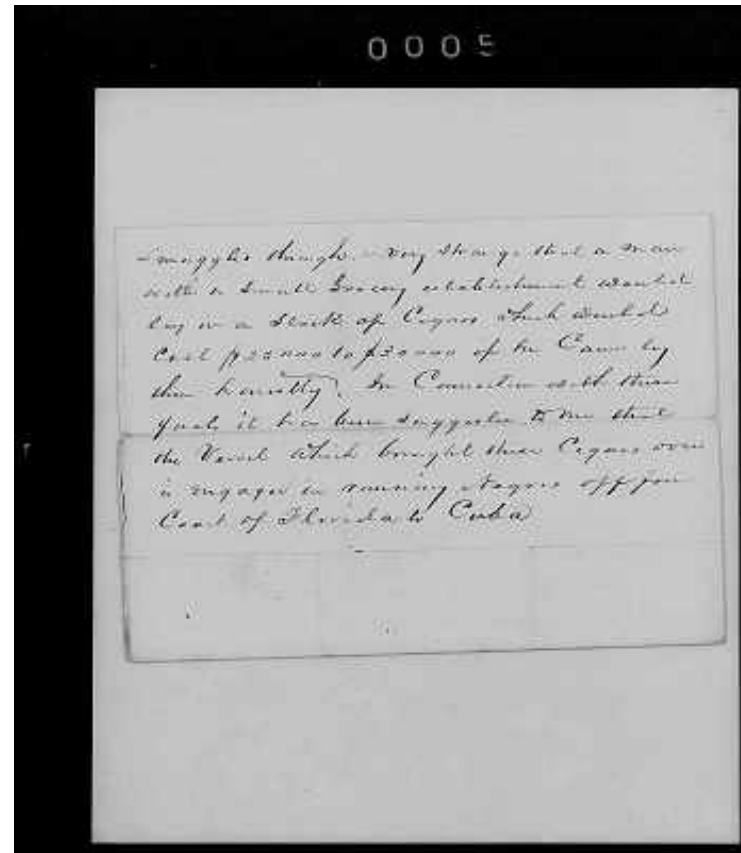 0005
smuggler though. Very strange that a man
with a Small Grocery establishment would
buy in a Stock of Cigars which would
cost $25000 to $30000 if he Came by
them honestly. In Connection with these
facts it has been suggested to me that
the Vessel which brought these Cigars over
is engaged in running Negros off from
Coast of Florida to Cuba